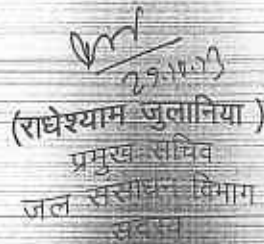 29.10.13
(राधेश्याम जुलानिया )
प्रमुख सचिव
जल संसाधन विभाग
सदस्य